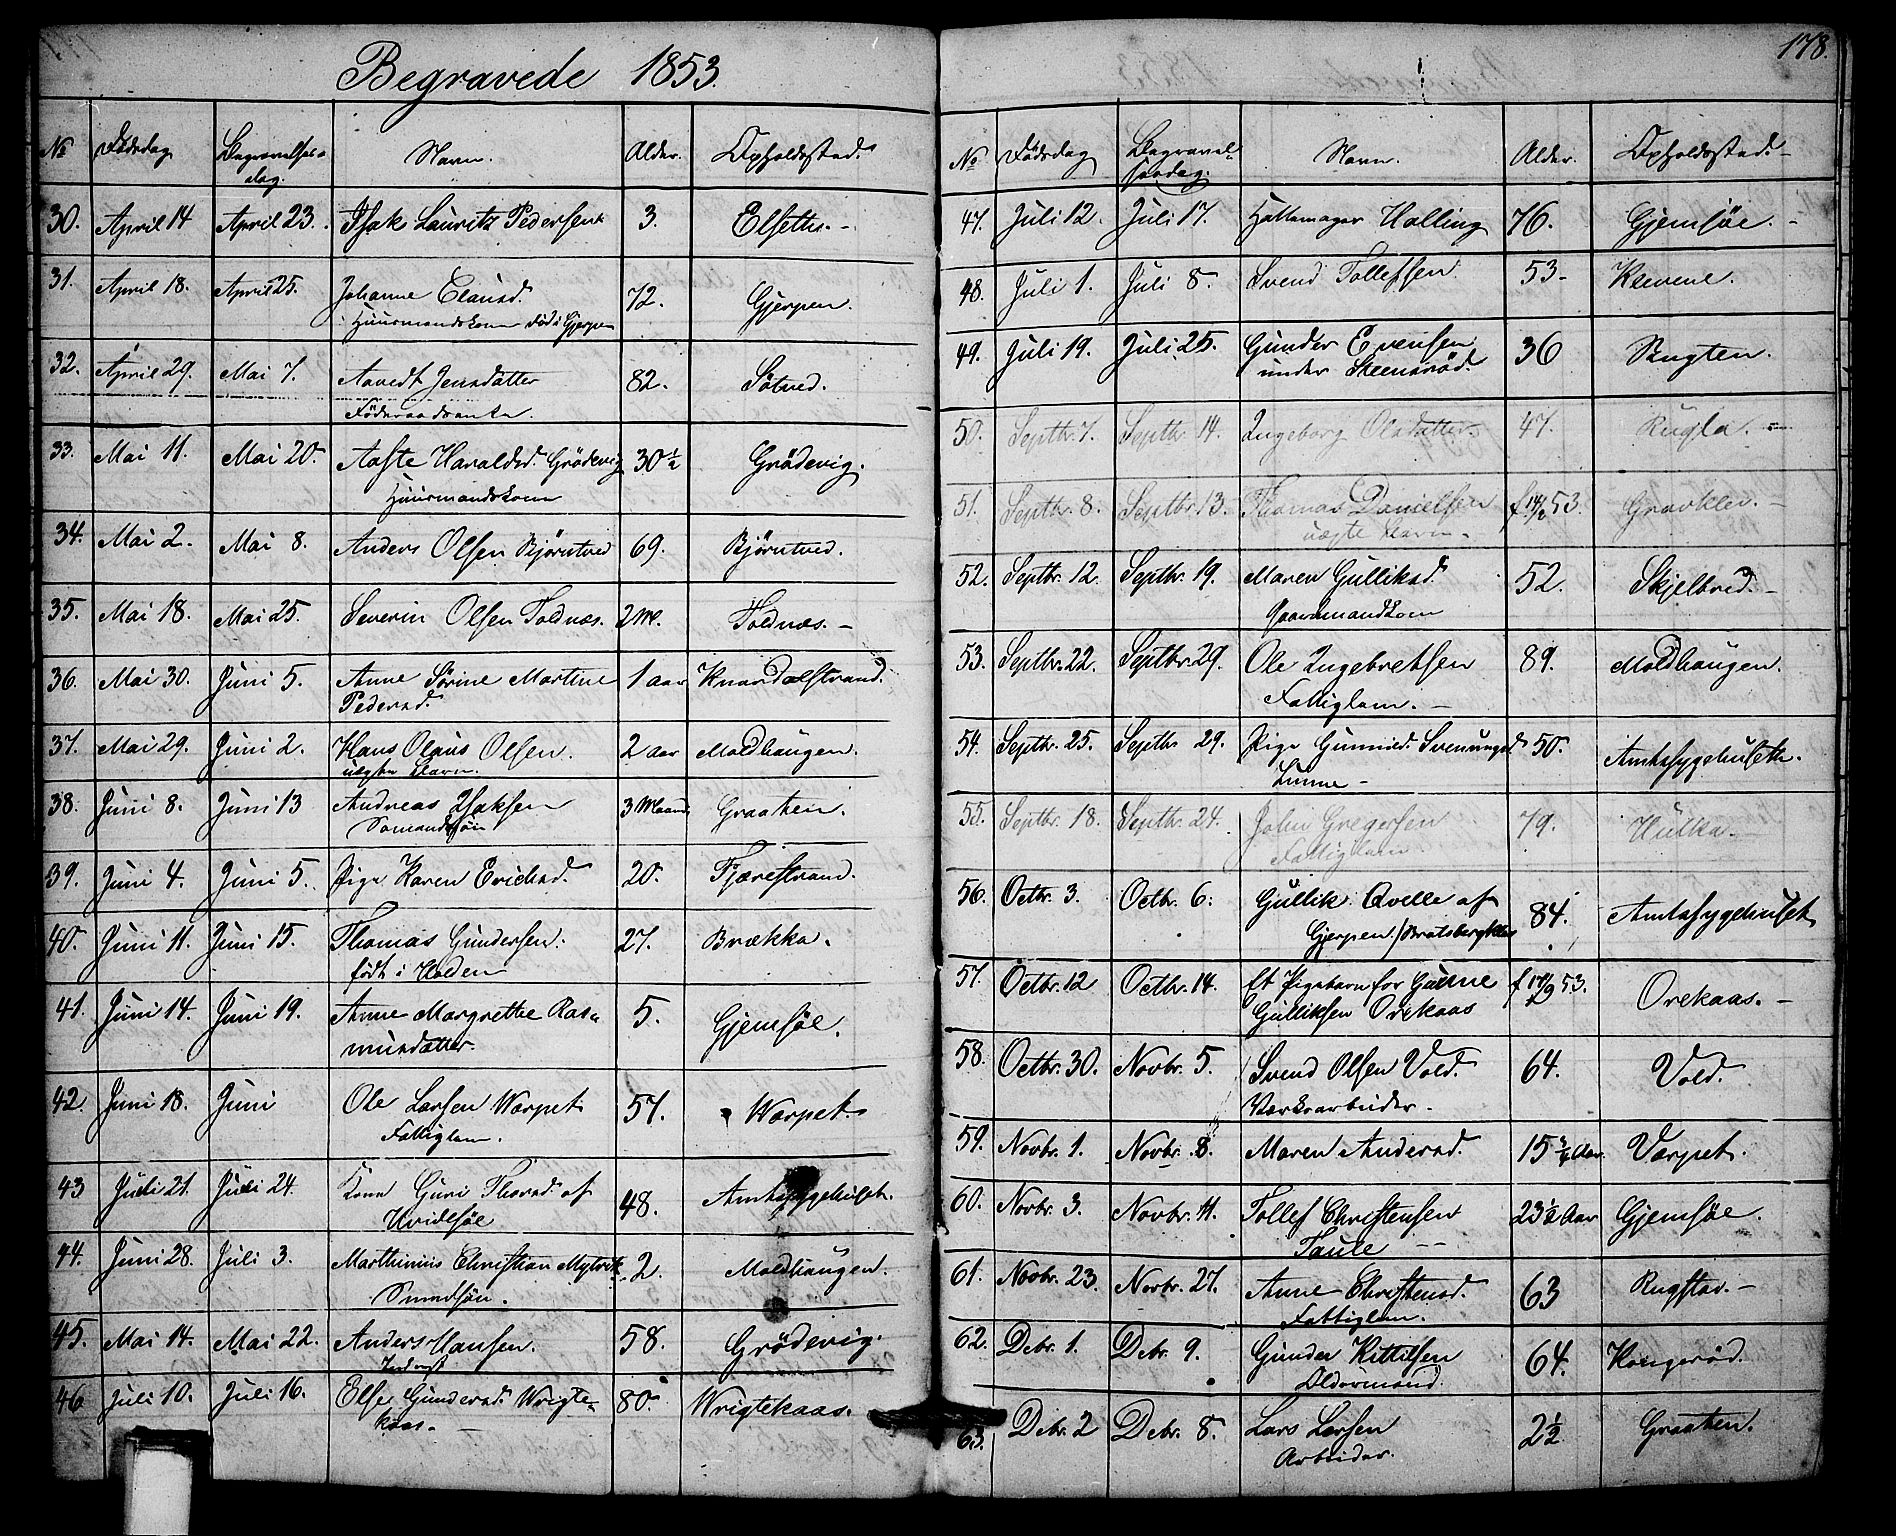 Begravede 1853.
178.
No Dödsdag Begravelses= Navn. Alder. Opholdssted.
dag.
30. April 14 April 23. Isak Lauritz Pedersen 3. Elseths.-
31. April 18. April 25. Johanne Clausd. 72. Gjerpen.
Huusmandskone Död i Gjerpen
32. April 29. Mai 7. Aavedt Jensdatter 82. Sötved.
Föderaadsenke.
33. Mai 11. Mai 20. Aaste Haraldsd. Grödevig 30½ Grödevig.
Huusmandskone
34. Mai 2. Mai 8. Anders Olsen Björntved 69. Björntved.
35. Mai 18. Mai 25. Severin Olsen Toldnæs. 2 M. Toldnæs.-
36. Mai 30. Juni 5. Anne Sörine Martine 1 aar Knardalstrand.
Pedersd.
37. Mai 29. Juni 2. Hans Olaus Olsen. 2 aar Moldhaugen.
uægte Barn.
38. Juni 8. Juni 13 Andreas Isaksen 3 Maaned Graaten.
Sömandssön
39. Juni 4. Juni 5. Pige Karen Erichsd. 20. Fjærestrand.
40. Juni 11. Juni 15. Thomas Gundersen. 27. Brækka.
födt i Holden
41. Juni 14. Juni 19. Anne Margrethe Ras= 5. Gjemsöe.
musdatter.
42. Juni 18. Juni Ole Larsen Warpet 57. Warpet.
Fattiglem.
43 Juli 21. Juli 24. Kone Guri Thorsd. af 48. Amtssygehuset.
Hvidesöe
44. Juni 28. Juli 3. Marthinius Christian 2. Moldhaugen.
45. Mai 14. Mai 22. Anders Hansen. 58. Grödevig.
46 Juli 10. Juli 16. Else Gundersd. Wrigte= 80. Wrigtekaas.
kaas.-
No Dödsdag Begravel= Navn. Alder. Opholdssted.-
sesdag.
47. Juli 12. Juli 17. Hattemager Holling 76. Gjemsöe.-
48. Juli 1. Juli 8. Svend Tollefsen 53- Klevene.
49. Juli 19. Juli 25. Gunder Evensen 36 Bugten.
under Steensrød.
50. Septbr. 7. Septbr. 14. Ingeborg Olsdatter. 47. Rugla.
51. Septbr. 8. Septbr. 13. Thomas Danielsen 53. Gravklev.-
uægte Barn.
52. Septbr. 12. Septbr. 19. Maren Gulliksd. 52. Skjelbred.-
Gaardmandkone
53. Septbr. 22. Septbr. 29. Ole Ingebretsen 89. Moldhaugen.
Fattiglem.-
54. Septbr. 25. Septbr 29. Pige Gunnild Svenungsd 50. Amtssygehuseth.
Lunne-
55. Septbr. 18. Septbr. 24. John Gregersen 79. Hulka.-
Fattiglem
56. Octbr. 3. Octbr. 6. Gullik Qvelle af 84. Amtssygehuset
Gjerpen/Bratsbergklev
57. Octbr. 12 Octbr. 14. Et Pigebarn for 53. Orekaas.-
Gulliksen Orekaas
58. Octbr. 30. Novbr. 5. Svend Olsen Vold. 64. Vold.
Værksarbeider.
59. Novbr. 1. Novbr. 8. Maren Andersd. 15 ¾ Aar. Varpet.
60. Novbr. 3. Novbr. 11. Tollef Christensen 23½ Aar Gjemsöe.
Taule
61. Novbr. 23. Novbr. 27. Anne Christensd. 63 Rugstad.-
Fattiglem.
62. Debr. 1. Debr. 9. Gunder Kittilsen 64. Kongerød.
63. Debr. 2 Debr. 8. Lars Larsen 2½ Graaten.
Arbeider.